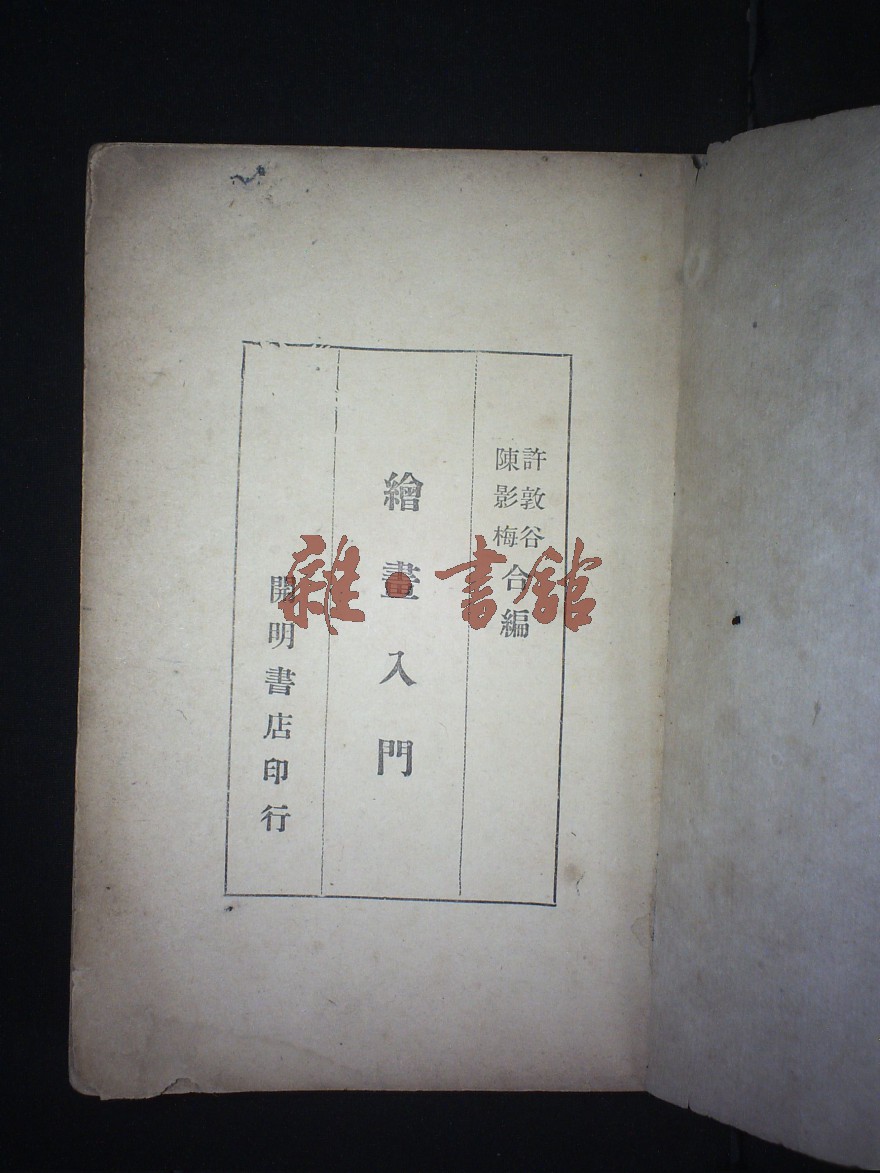 許敦谷
陳影梅
合編
繪畫入門
開明書店印行
雜·書館